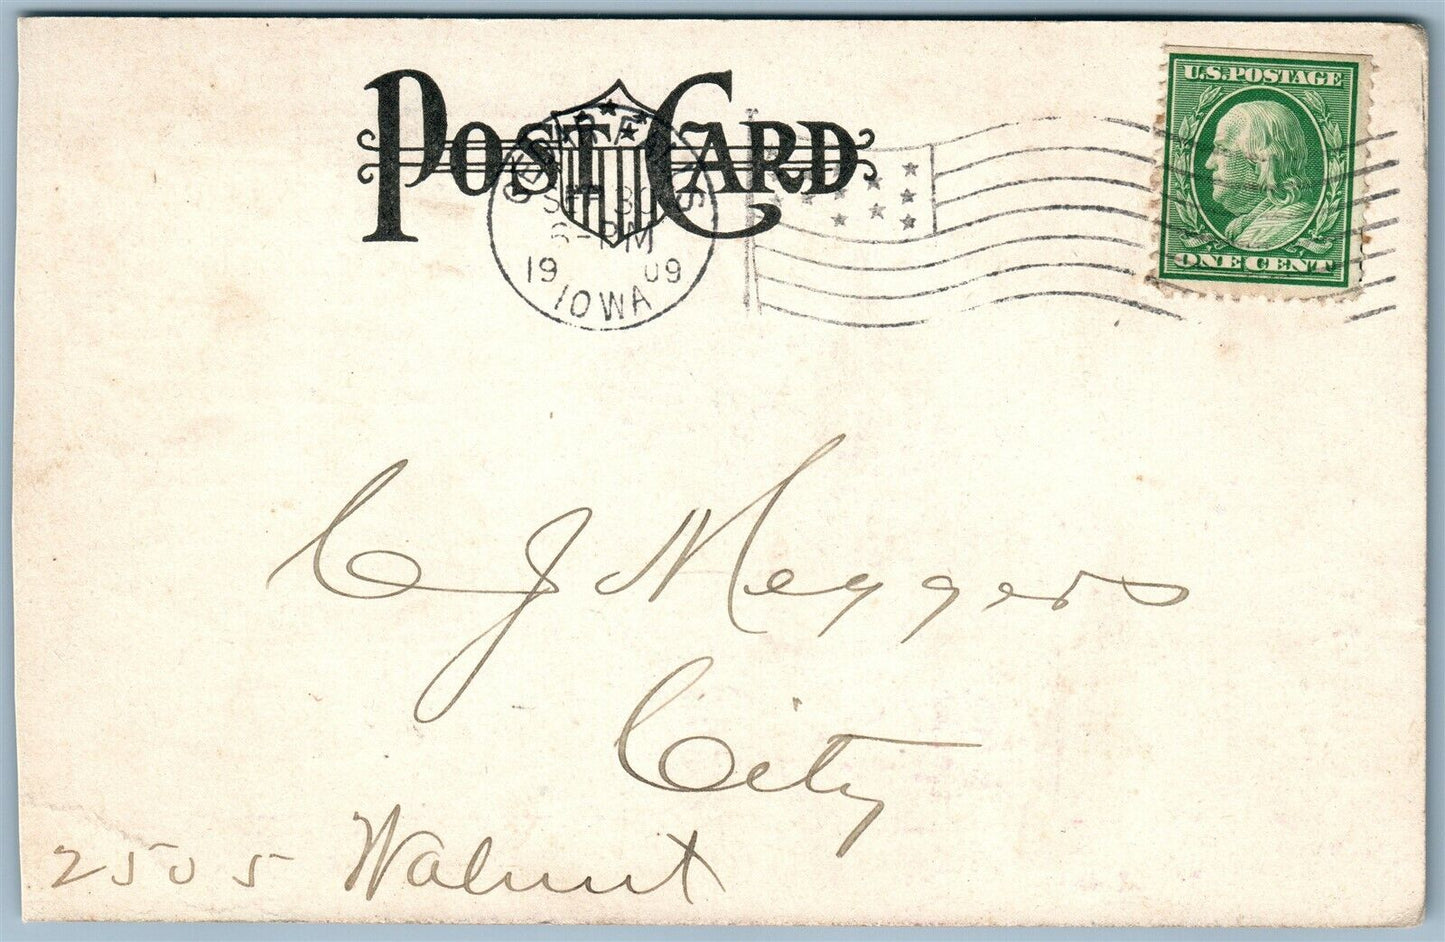 POST CARD
U.S. POSTAGE
CEDAR FALLS
SEP 30
6-PM
1909
IOWA
ONE CENT
C J Meggers
City
2505 Walnut